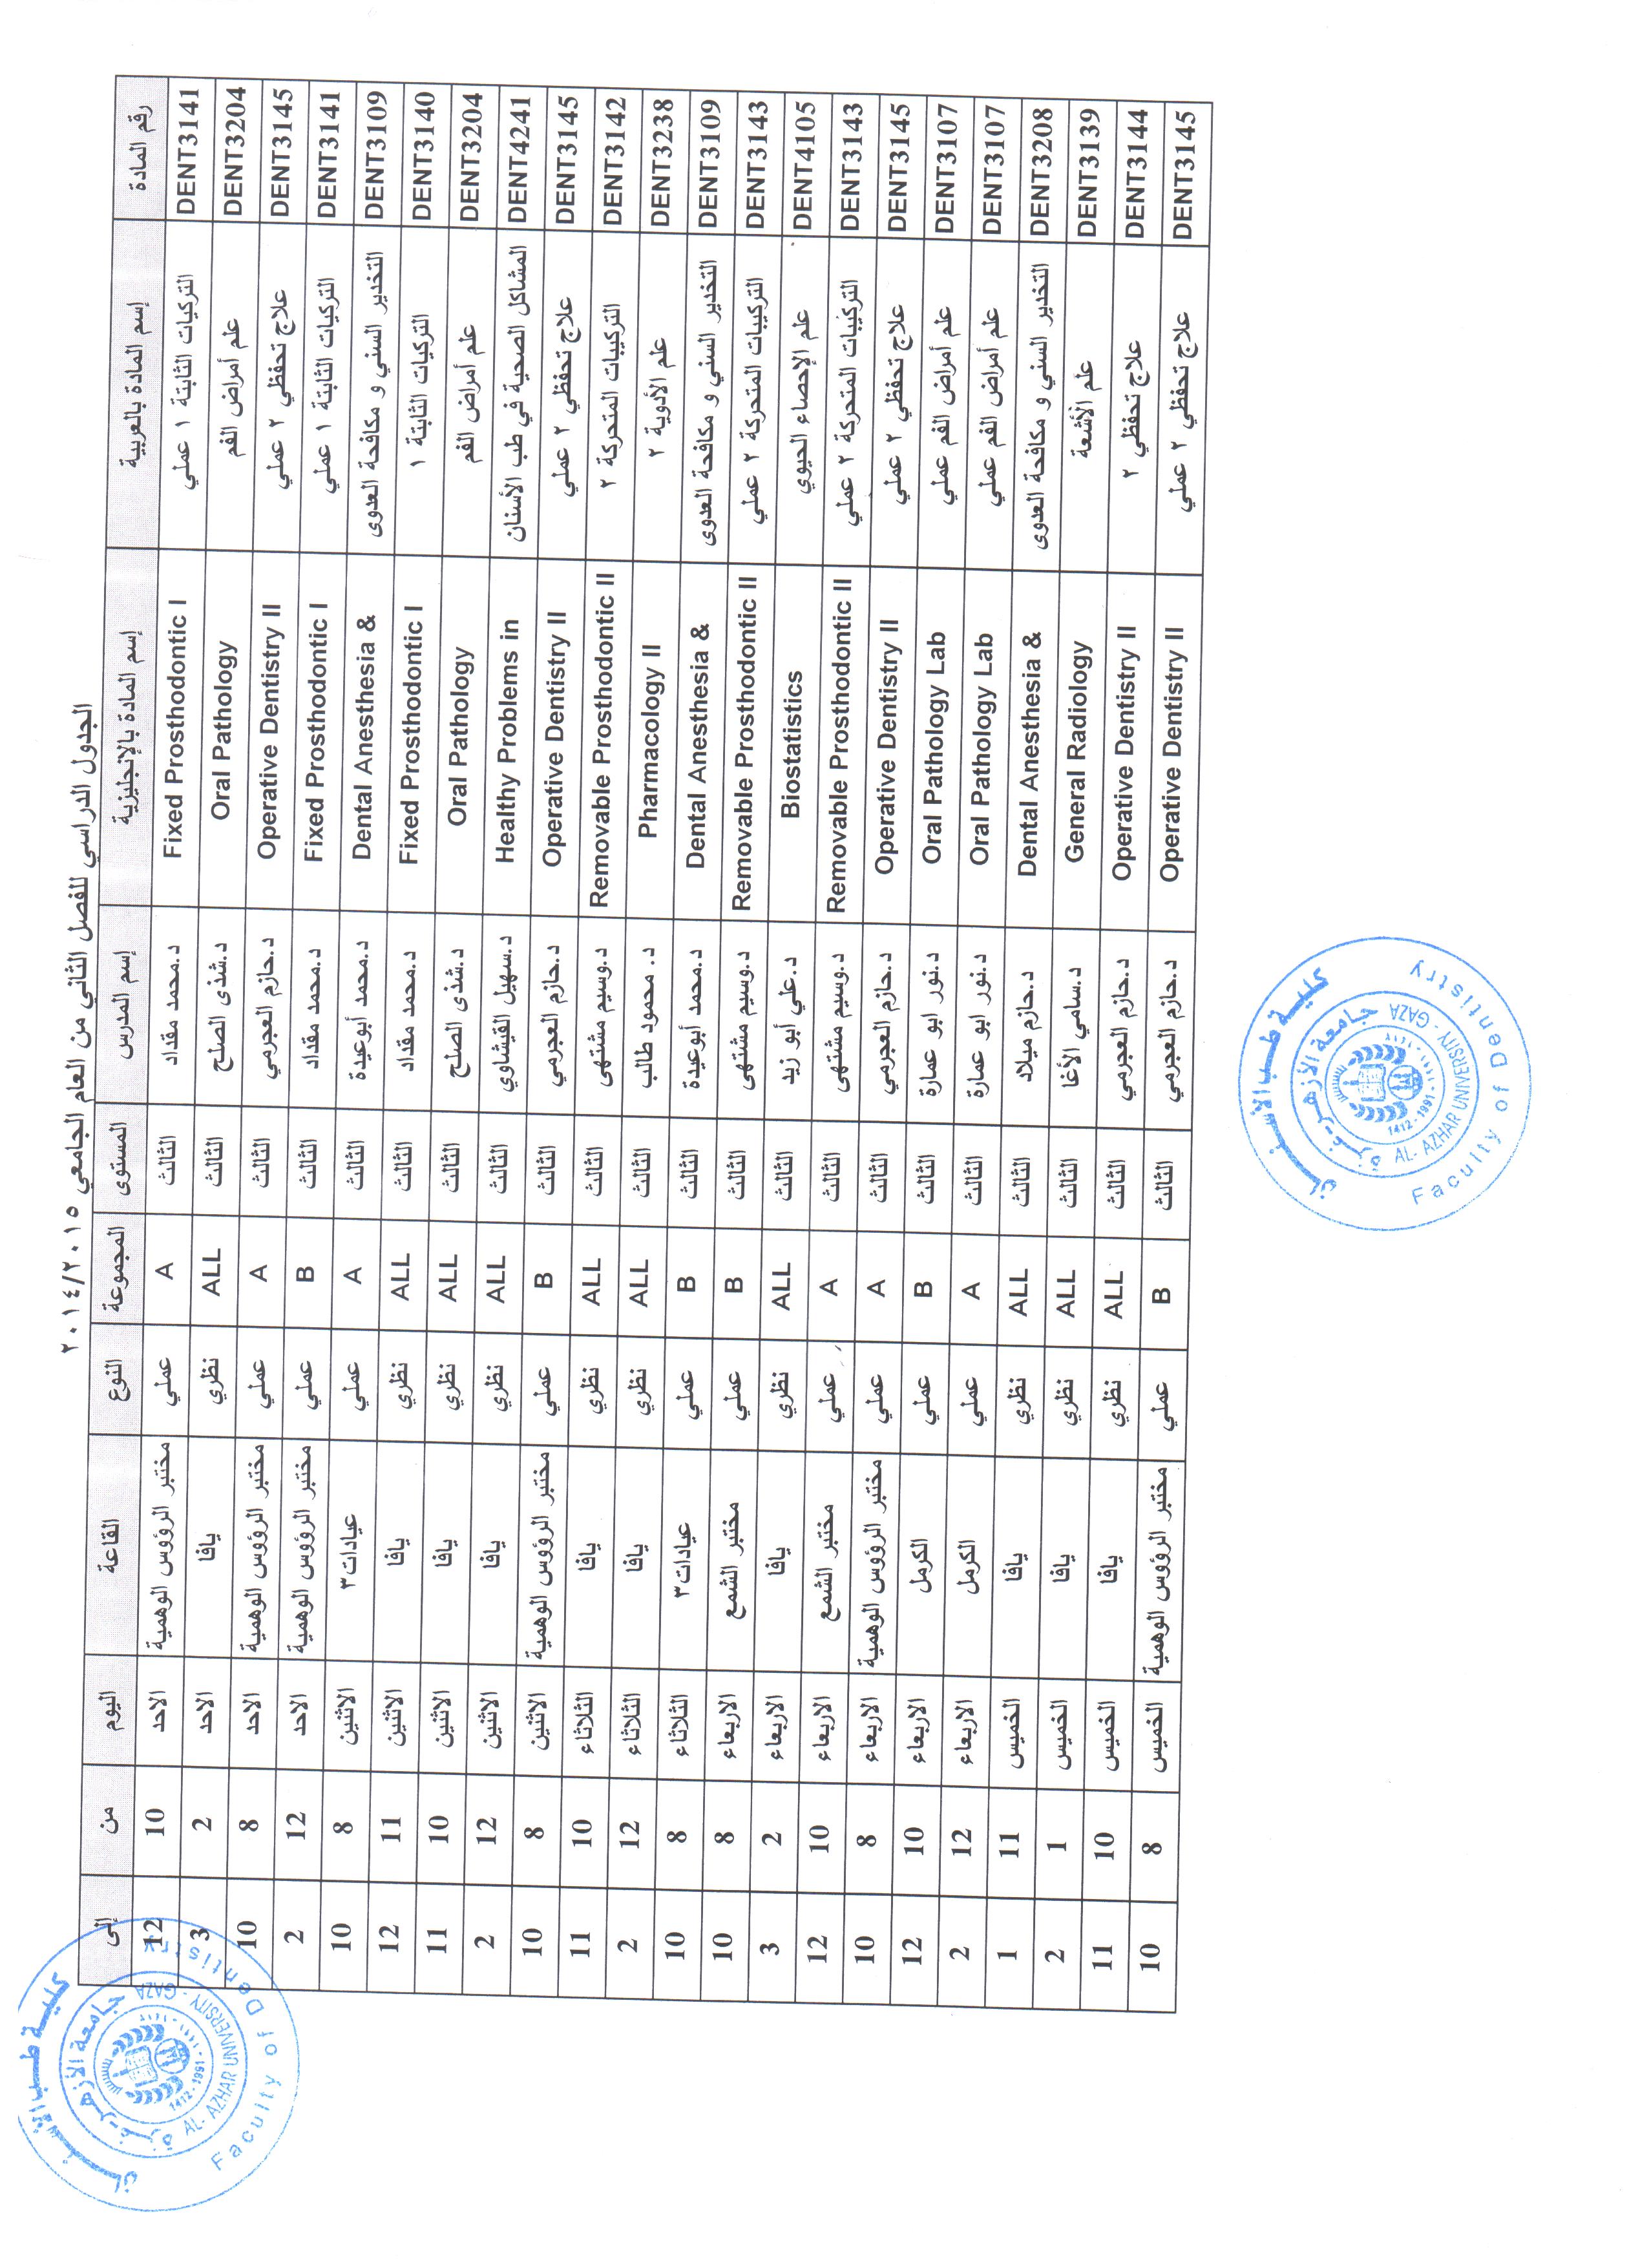 الجدول الدراسي للفصل الثاني من العام الجامعي ٢٠١٤/٢٠١٥
رقم المادة إسم المادة بالعربية إسم المادة بالإنجليزية إسم المدرس المستوى المجموعة النوع القاعة اليوم من إلى
DENT3141 التركيات الثابتة ١ عملي Fixed Prosthodontic I د.محمد مقداد الثالث A عملي مختبر الرؤوس الوهمية الاحد 10 12
DENT3204 علم أمراض الفم Oral Pathology د.شذى الصلح الثالث ALL نظري يافا الاحد 2 3
DENT3145 علاج تحفظي ٢ عملي Operative Dentistry II د.حازم العجرمي الثالث A عملي مختبر الرؤوس الوهمية الاحد 8 10
DENT3141 التركيات الثابتة ١ عملي Fixed Prosthodontic I د.محمد مقداد الثالث B عملي مختبر الرؤوس الوهمية الاحد 12 2
DENT3109 التخدير السني و مكافحة العدوى Dental Anesthesia & د.محمد أبوعيدة الثالث A عملي عيادات٣ الاثنين 8 10
DENT3140 التركيات الثابتة ١ Fixed Prosthodontic I د.محمد مقداد الثالث ALL نظري يافا الاثنين 11 12
DENT3204 علم أمراض الفم Oral Pathology د.شذى الصلح الثالث ALL نظري يافا الاثنين 10 11
DENT4241 المشاكل الصحية في طب الأسنان Healthy Problems in د.سهيل القيشاوي الثالث ALL نظري يافا الاثنين 12 2
DENT3145 علاج تحفظي ٢ عملي Operative Dentistry II د.حازم العجرمي الثالث B عملي مختبر الرؤوس الوهمية الاثنين 8 10
DENT3142 التركيبات المتحركة ٢ Removable Prosthodontic II د.وسيم مشتهى الثالث ALL نظري يافا الثلاثاء 10 11
DENT3238 علم الأدوية ٢ Pharmacology II د. محمود طالب الثالث ALL نظري يافا الثلاثاء 12 2
DENT3109 التخدير السني و مكافحة العدوى Dental Anesthesia & د.محمد أبوعيدة الثالث B عملي عيادات٣ الثلاثاء 8 10
DENT3143 التركيبات المتحركة ٢ عملي Removable Prosthodontic II د.وسيم مشتهى الثالث B عملي مختبر الشمع الاربعاء 8 10
DENT4105 علم الإحصاء الحيوي Biostatistics د.علي أبو زيد الثالث ALL نظري يافا الاربعاء 2 3
DENT3143 التركيبات المتحركة ٢ عملي Removable Prosthodontic II د.وسيم مشتهى الثالث A عملي مختبر الشمع الاربعاء 10 12
DENT3145 علاج تحفظي ٢ عملي Operative Dentistry II د.حازم العجرمي الثالث A عملي مختبر الرؤوس الوهمية الاربعاء 8 10
DENT3107 علم أمراض الفم عملي Oral Pathology Lab د.نور ابو عمارة الثالث B عملي الكرمل الاربعاء 10 12
DENT3107 علم أمراض الفم عملي Oral Pathology Lab د.نور ابو عمارة الثالث A عملي الكرمل الاربعاء 12 2
DENT3208 التخدير السني و مكافحة العدوى Dental Anesthesia & د.حازم ميلاد الثالث ALL نظري يافا الخميس 11 1
DENT3139 علم الأشعة General Radiology د.سامي الأغا الثالث ALL نظري يافا الخميس 1 2
DENT3144 علاج تحفظي ٢ Operative Dentistry II د.حازم العجرمي الثالث ALL نظري يافا الخميس 10 11
DENT3145 علاج تحفظي ٢ عملي Operative Dentistry II د.حازم العجرمي الثالث B عملي مختبر الرؤوس الوهمية الخميس 8 10
كلية طب الأسنان
جامعة الأزهر - غزة
1412 - 1991
AL- AZHAR UNIVERSITY - GAZA
Faculty of Dentistry
كلية طب الأسنان
جامعة الأزهر - غزة
1412 - 1991
AL- AZHAR UNIVERSITY - GAZA
Faculty of Dentistry